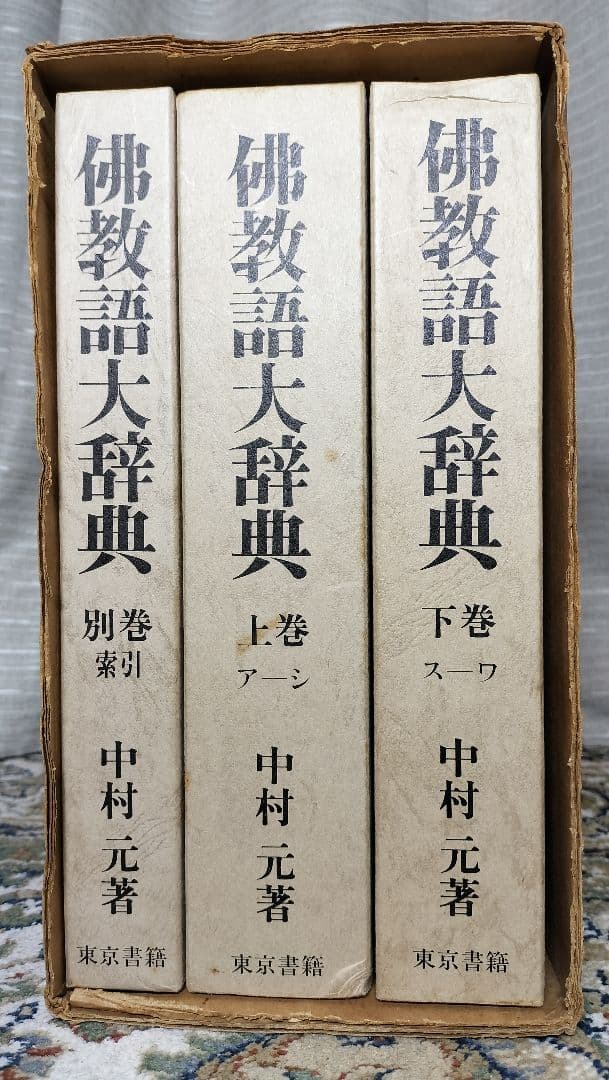 佛教語大辞典
別巻
索引
中村 元著
東京書籍
佛教語大辞典
上巻
ア―シ
中村 元著
東京書籍
佛教語大辞典
下巻
ス―ワ
中村 元著
東京書籍